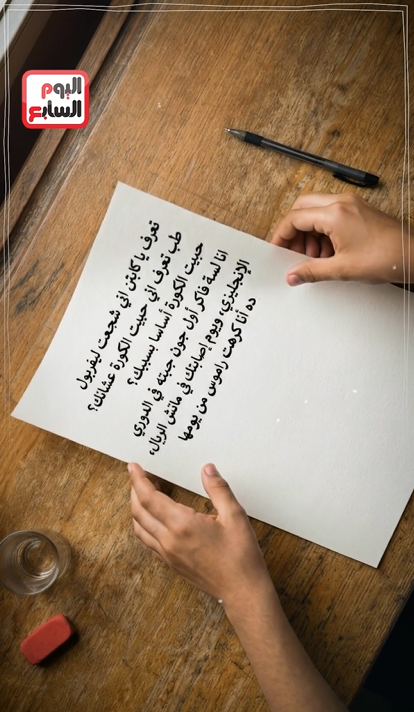 اليوم
السابع
تعرف يا كابتن اني شجعت ليفربول
طب تعرف اني حبيت الكورة عشانك؟
حبيت الكورة أساسا بسببك؟
انا لسة فاكر أول جون جبته في الدوري
الإنجليزي، ويوم إصابتك في ماتش الريال،
ده أنا كرهت راموس من يومها